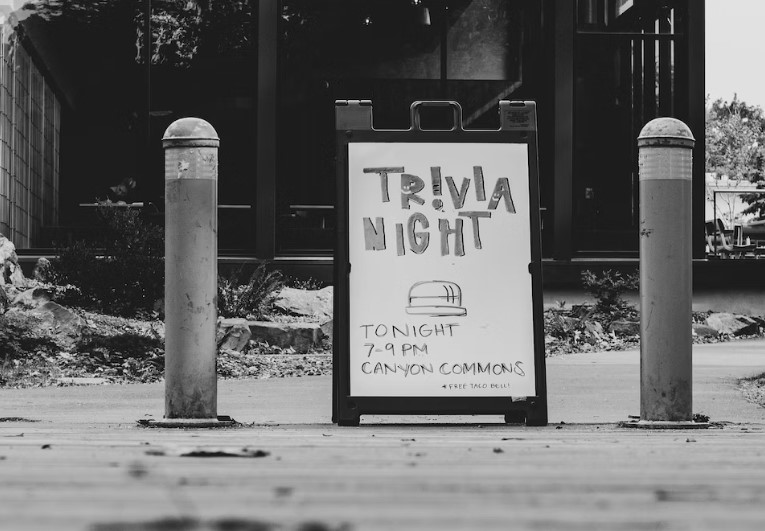 TR!VIA
NIGHT
TONIGHT
7-9 PM
CANYON COMMONS
◂ FREE TACO BELL!